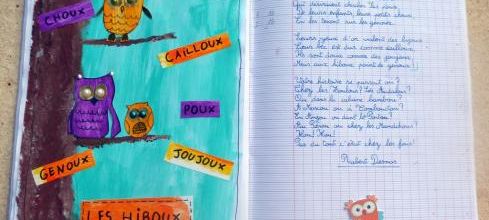 CHOUX
CAILLOUX
POUX
GENOUX
JOUJOUX
LES HIBOUX
Qui désiraient chercher les poux
De leurs enfants, leurs petits choux
En les tenant sur les genoux.
Leurs yeux d'or valent des bijoux
Leur bec est dur comme cailloux,
Ils sont doux comme des joujoux,
Mais aux hiboux point de genoux !
Votre histoire se passait où ?
Chez les Zoulous ? Les Andalous ?
Ou dans la cabane bambou ?
A Moscou ou à Tombouctou ?
En Anjou ou dans le Poitou ?
Au Pérou ou chez les Mandchous ?
Hou ! Hou !
Pas du tout c'était chez les fous !
Robert Desnos